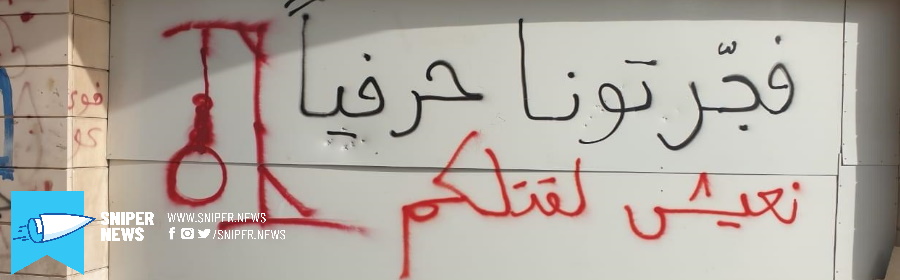 فجّرتونا حرفياً
نعيش لقتلكم
SNIPER
NEWS
WWW.SNIPER.NEWS
/SNIPER.NEWS